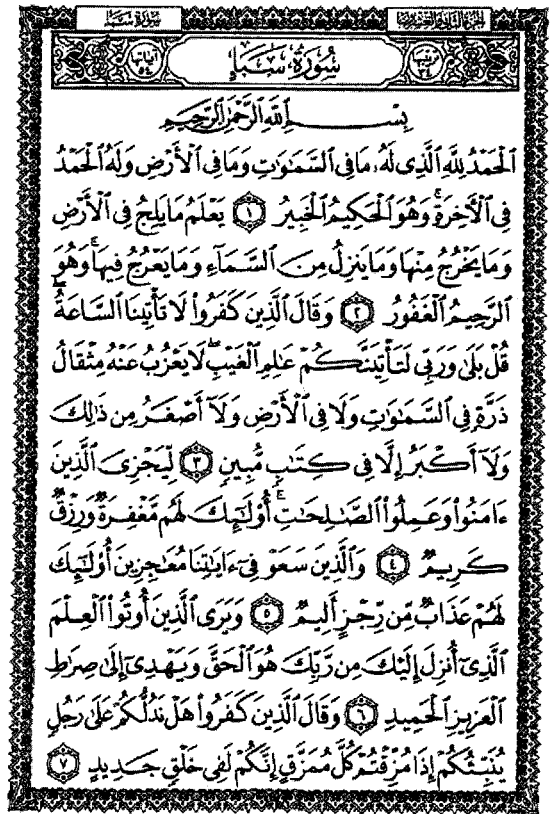 الجزء الثاني والعشرون
سورة سبأ
ترتيبها ٣٤
سُورَةُ سَبَإٍ
آياتها ٥٤
بِسْمِ ٱللَّهِ ٱلرَّحْمَٰنِ ٱلرَّحِيمِ
ٱلْحَمْدُ لِلَّهِ ٱلَّذِى لَهُۥ مَا فِى ٱلسَّمَٰوَٰتِ وَمَا فِى ٱلْأَرْضِ وَلَهُ ٱلْحَمْدُ
فِى ٱلْءَاخِرَةِ ۚ وَهُوَ ٱلْحَكِيمُ ٱلْخَبِيرُ ١ يَعْلَمُ مَا يَلِجُ فِى ٱلْأَرْضِ
وَمَا يَخْرُجُ مِنْهَا وَمَا يَنزِلُ مِنَ ٱلسَّمَآءِ وَمَا يَعْرُجُ فِيهَا ۚ وَهُوَ
ٱلرَّحِيمُ ٱلْغَفُورُ ٢ وَقَالَ ٱلَّذِينَ كَفَرُوا۟ لَا تَأْتِينَا ٱلسَّاعَةُ ۖ
قُلْ بَلَىٰ وَرَبِّى لَتَأْتِيَنَّكُمْ عَٰلِمِ ٱلْغَيْبِ ۖ لَا يَعْزُبُ عَنْهُ مِثْقَالُ
ذَرَّةٍ فِى ٱلسَّمَٰوَٰتِ وَلَا فِى ٱلْأَرْضِ وَلَآ أَصْغَرُ مِن ذَٰلِكَ
وَلَآ أَكْبَرُ إِلَّا فِى كِتَٰبٍ مُّبِينٍ ٣ لِّيَجْزِىَ ٱلَّذِينَ
ءَامَنُوا۟ وَعَمِلُوا۟ ٱلصَّٰلِحَٰتِ ۚ أُو۟لَٰٓئِكَ لَهُم مَّغْفِرَةٌ وَرِزْقٌ
كَرِيمٌ ٤ وَٱلَّذِينَ سَعَوْ فِىٓ ءَايَٰتِنَا مُعَٰجِزِينَ أُو۟لَٰٓئِكَ
لَهُمْ عَذَابٌ مِّن رِّجْزٍ أَلِيمٌ ٥ وَيَرَى ٱلَّذِينَ أُوتُوا۟ ٱلْعِلْمَ
ٱلَّذِىٓ أُنزِلَ إِلَيْكَ مِن رَّبِّكَ هُوَ ٱلْحَقَّ وَيَهْدِىٓ إِلَىٰ صِرَٰطِ
ٱلْعَزِيزِ ٱلْحَمِيدِ ٦ وَقَالَ ٱلَّذِينَ كَفَرُوا۟ هَلْ نَدُلُّكُمْ عَلَىٰ رَجُلٍ
يُنَبِّئُكُمْ إِذَا مُزِّقْتُمْ كُلَّ مُمَزَّقٍ إِنَّكُمْ لَفِى خَلْقٍ جَدِيدٍ ٧